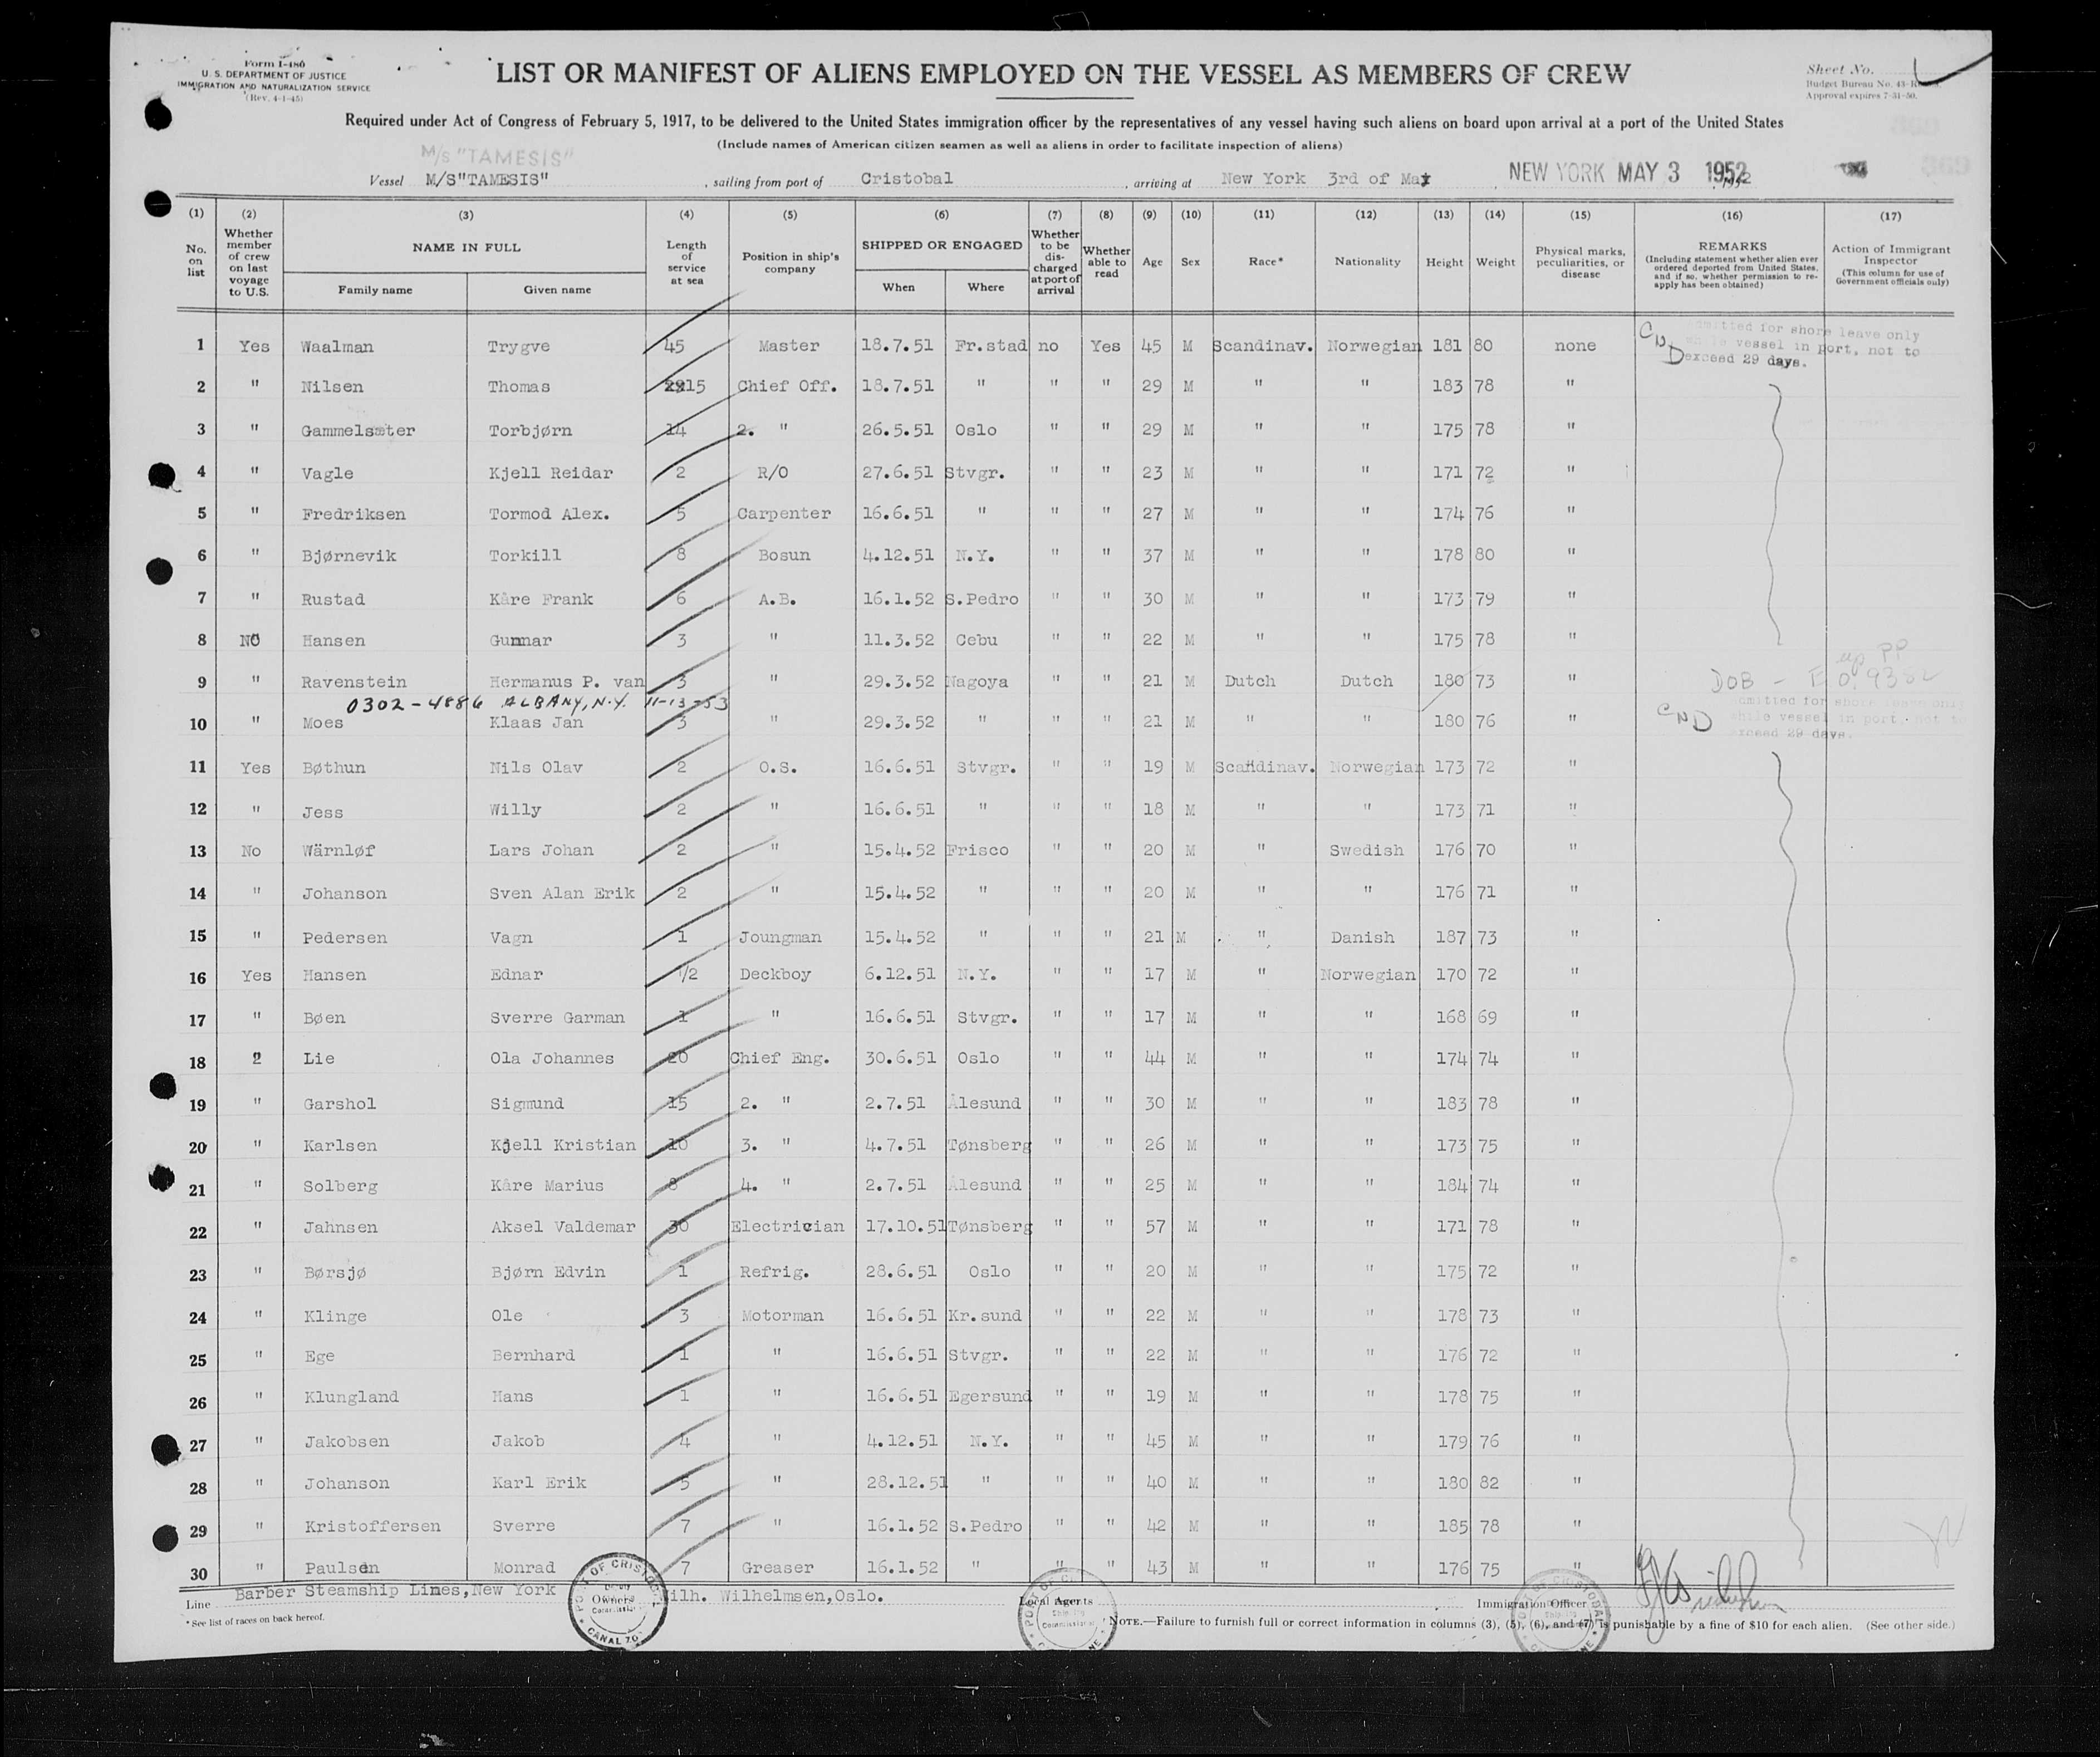 Form I-486
U. S. DEPARTMENT OF JUSTICE
IMMIGRATION AND NATURALIZATION SERVICE
(Rev. 4-1-45)
LIST OR MANIFEST OF ALIENS EMPLOYED ON THE VESSEL AS MEMBERS OF CREW
Sheet No.
Budget Bureau No. 43-
Approval expires 7-31-50.
Required under Act of Congress of February 5, 1917, to be delivered to the United States immigration officer by the representatives of any vessel having such aliens on board upon arrival at a port of the United States
(Include names of American citizen seamen as well as aliens in order to facilitate inspection of aliens)
M/s "TAMESIS"
Vessel M/S"TAMESIS" , sailing from port of Cristobal , arriving at New York 3rd of May NEW YORK MAY 3 1952
(1) (2) (3) (4) (5) (6) (7) (8) (9) (10) (11) (12) (13) (14) (15) (16) (17)
No. on list | Whether member of crew on last voyage to U.S. | NAME IN FULL Family name Given name | Length of service at sea | Position in ship's company | SHIPPED OR ENGAGED When Where | Whether to be discharged at port of arrival | Whether able to read | Age | Sex | Race* | Nationality | Height | Weight | Physical marks, peculiarities, or disease | REMARKS (Including statement whether alien ever ordered deported from United States, and if so, whether permission to reapply has been obtained) | Action of Immigrant Inspector (This column for use of Government officials only)
1 Yes Waalman Trygve 45 Master 18.7.51 Fr.stad no Yes 45 M Scandinav. Norwegian 181 80 none CND admitted for shore leave only while vessel in port, not to exceed 29 days.
2 " Nilsen Thomas 15 Chief Off. 18.7.51 " " " 29 M " " 183 78 "
3 " Gammelsæter Torbjørn 14 2. " 26.5.51 Oslo " " 29 M " " 175 78 "
4 " Vagle Kjell Reidar 2 R/O 27.6.51 Stvgr. " " 23 M " " 171 72 "
5 " Fredriksen Tormod Alex. 5 Carpenter 16.6.51 " " " 27 M " " 174 76 "
6 " Bjørnevik Torkill 8 Bosun 4.12.51 N.Y. " " 37 M " " 178 80 "
7 " Rustad Kåre Frank 6 A.B. 16.1.52 S.Pedro " " 30 M " " 173 79 "
8 NO Hansen Gunnar 3 " 11.3.52 Cebu " " 22 M " " 175 78 "
9 " Ravenstein Hermanus P. van 3 " 29.3.52 Nagoya " " 21 M Dutch Dutch 180 73 " DOB -
0302-4886 ALBANY, N.Y. 11-13-53
10 " Moes Klaas Jan 3 " 29.3.52 " " " 21 M " " 180 76 " CND admitted for shore leave only while vessel in port, not to exceed 29 days.
11 Yes Bøthun Nils Olav 2 O.S. 16.6.51 Stvgr. " " 19 M Scandinav. Norwegian 173 72 "
12 " Jess Willy 2 " 16.6.51 " " " 18 M " " 173 71 "
13 No Wärnløf Lars Johan 2 " 15.4.52 Frisco " " 20 M " Swedish 176 70 "
14 " Johanson Sven Alan Erik 2 " 15.4.52 " " " 20 M " " 176 71 "
15 " Pedersen Vagn 1 Joungman 15.4.52 " " " 21 M " Danish 187 73 "
16 Yes Hansen Ednar 1/2 Deckboy 6.12.51 N.Y. " " 17 M " Norwegian 170 72 "
17 " Bøen Sverre Garman 1 " 16.6.51 Stvgr. " " 17 M " " 168 69 "
18 " Lie Ola Johannes 20 Chief Eng. 30.6.51 Oslo " " 44 M " " 174 74 "
19 " Garshol Sigmund 15 2. " 2.7.51 Ålesund " " 30 M " " 183 78 "
20 " Karlsen Kjell Kristian 10 3. " 4.7.51 Tønsberg " " 26 M " " 173 75 "
21 " Solberg Kåre Marius 8 4. " 2.7.51 Ålesund " " 25 M " " 184 74 "
22 " Jahnsen Aksel Valdemar 30 Electrician 17.10.51 Tønsberg " " 57 M " " 171 78 "
23 " Børsjø Bjørn Edvin 1 Refrig. 28.6.51 Oslo " " 20 M " " 175 72 "
24 " Klinge Ole 3 Motorman 16.6.51 Kr.sund " " 22 M " " 178 73 "
25 " Ege Bernhard 1 " 16.6.51 Stvgr. " " 22 M " " 176 72 "
26 " Klungland Hans 1 " 16.6.51 Egersund " " 19 M " " 178 75 "
27 " Jakobsen Jakob 4 " 4.12.51 N.Y. " " 45 M " " 179 76 "
28 " Johanson Karl Erik 5 " 28.12.51 " " " 40 M " " 180 82 "
29 " Kristoffersen Sverre 7 " 16.1.52 S.Pedro " " 42 M " " 185 78 "
30 " Paulsen Monrad 7 Greaser 16.1.52 " " " 43 M " " 176 75 "
Line Barber Steamship Lines,New York Owners Wilh. Wilhelmsen,Oslo. Local Agents Immigration Officer
PORT OF CRISTOBAL CANAL ZONE
* See list of races on back hereof.
NOTE.—Failure to furnish full or correct information in columns (3), (5), (6), and (7) is punishable by a fine of $10 for each alien. (See other side.)